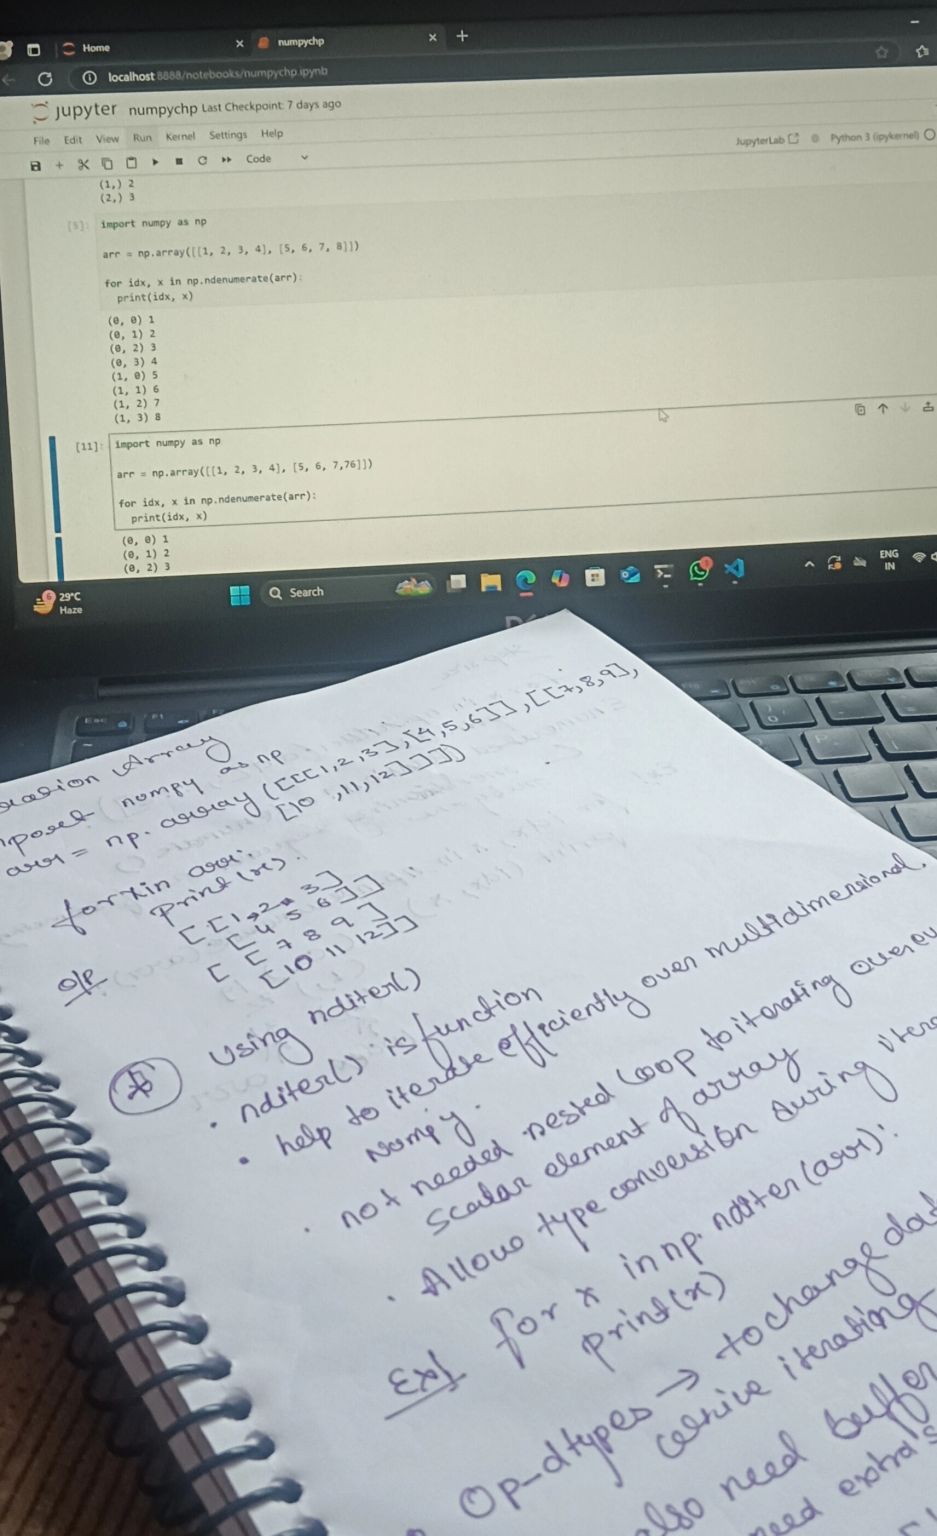 Home
numpychp
localhost:8888/notebooks/numpychp.ipynb
jupyter numpychp Last Checkpoint: 7 days ago
File Edit View Run Kernel Settings Help
JupyterLab Python 3 (ipykernel)
Code
(1,) 2
(2,) 3
[5]: import numpy as np
arr = np.array([[1, 2, 3, 4], [5, 6, 7, 8]])
for idx, x in np.ndenumerate(arr):
print(idx, x)
(0, 0) 1
(0, 1) 2
(0, 2) 3
(0, 3) 4
(1, 0) 5
(1, 1) 6
(1, 2) 7
(1, 3) 8
[11]: import numpy as np
arr = np.array([[1, 2, 3, 4], [5, 6, 7,76]])
for idx, x in np.ndenumerate(arr):
print(idx, x)
(0, 0) 1
(0, 1) 2
(0, 2) 3
6
29°C
Haze
Search
ENG
IN
Esc F1
Array
numpy as np
arr = np.array([[[1,2,3],[4,5,6]],[[7,8,9],
[10,11,12]]])
for x in arr:
print(x).
O/P
[[1 2 3]
[4 5 6]]
[[7 8 9]
[10 11 12]]
Using nditer()
. nditer() is function
. help to iterate efficiently over multidimensional
Numpy.
. not needed nested loop to iterating over
scalar element of array
. Allows type conversion during
Ex1 for x in np.nditer(arr):
print(x)
Op-dtypes → to change
iterating
also need buffer
need extra